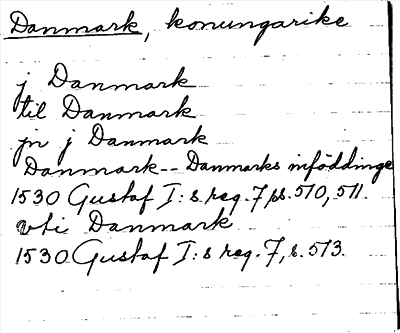 Danmark, konungarike
j Danmark
til Danmark
jn j Danmark
Danmark -- Danmarks inföddinge
1530 Gustaf I:s reg. 7, ss. 510, 511.
vti Danmark
1530 Gustaf I:s reg. 7, s. 513.